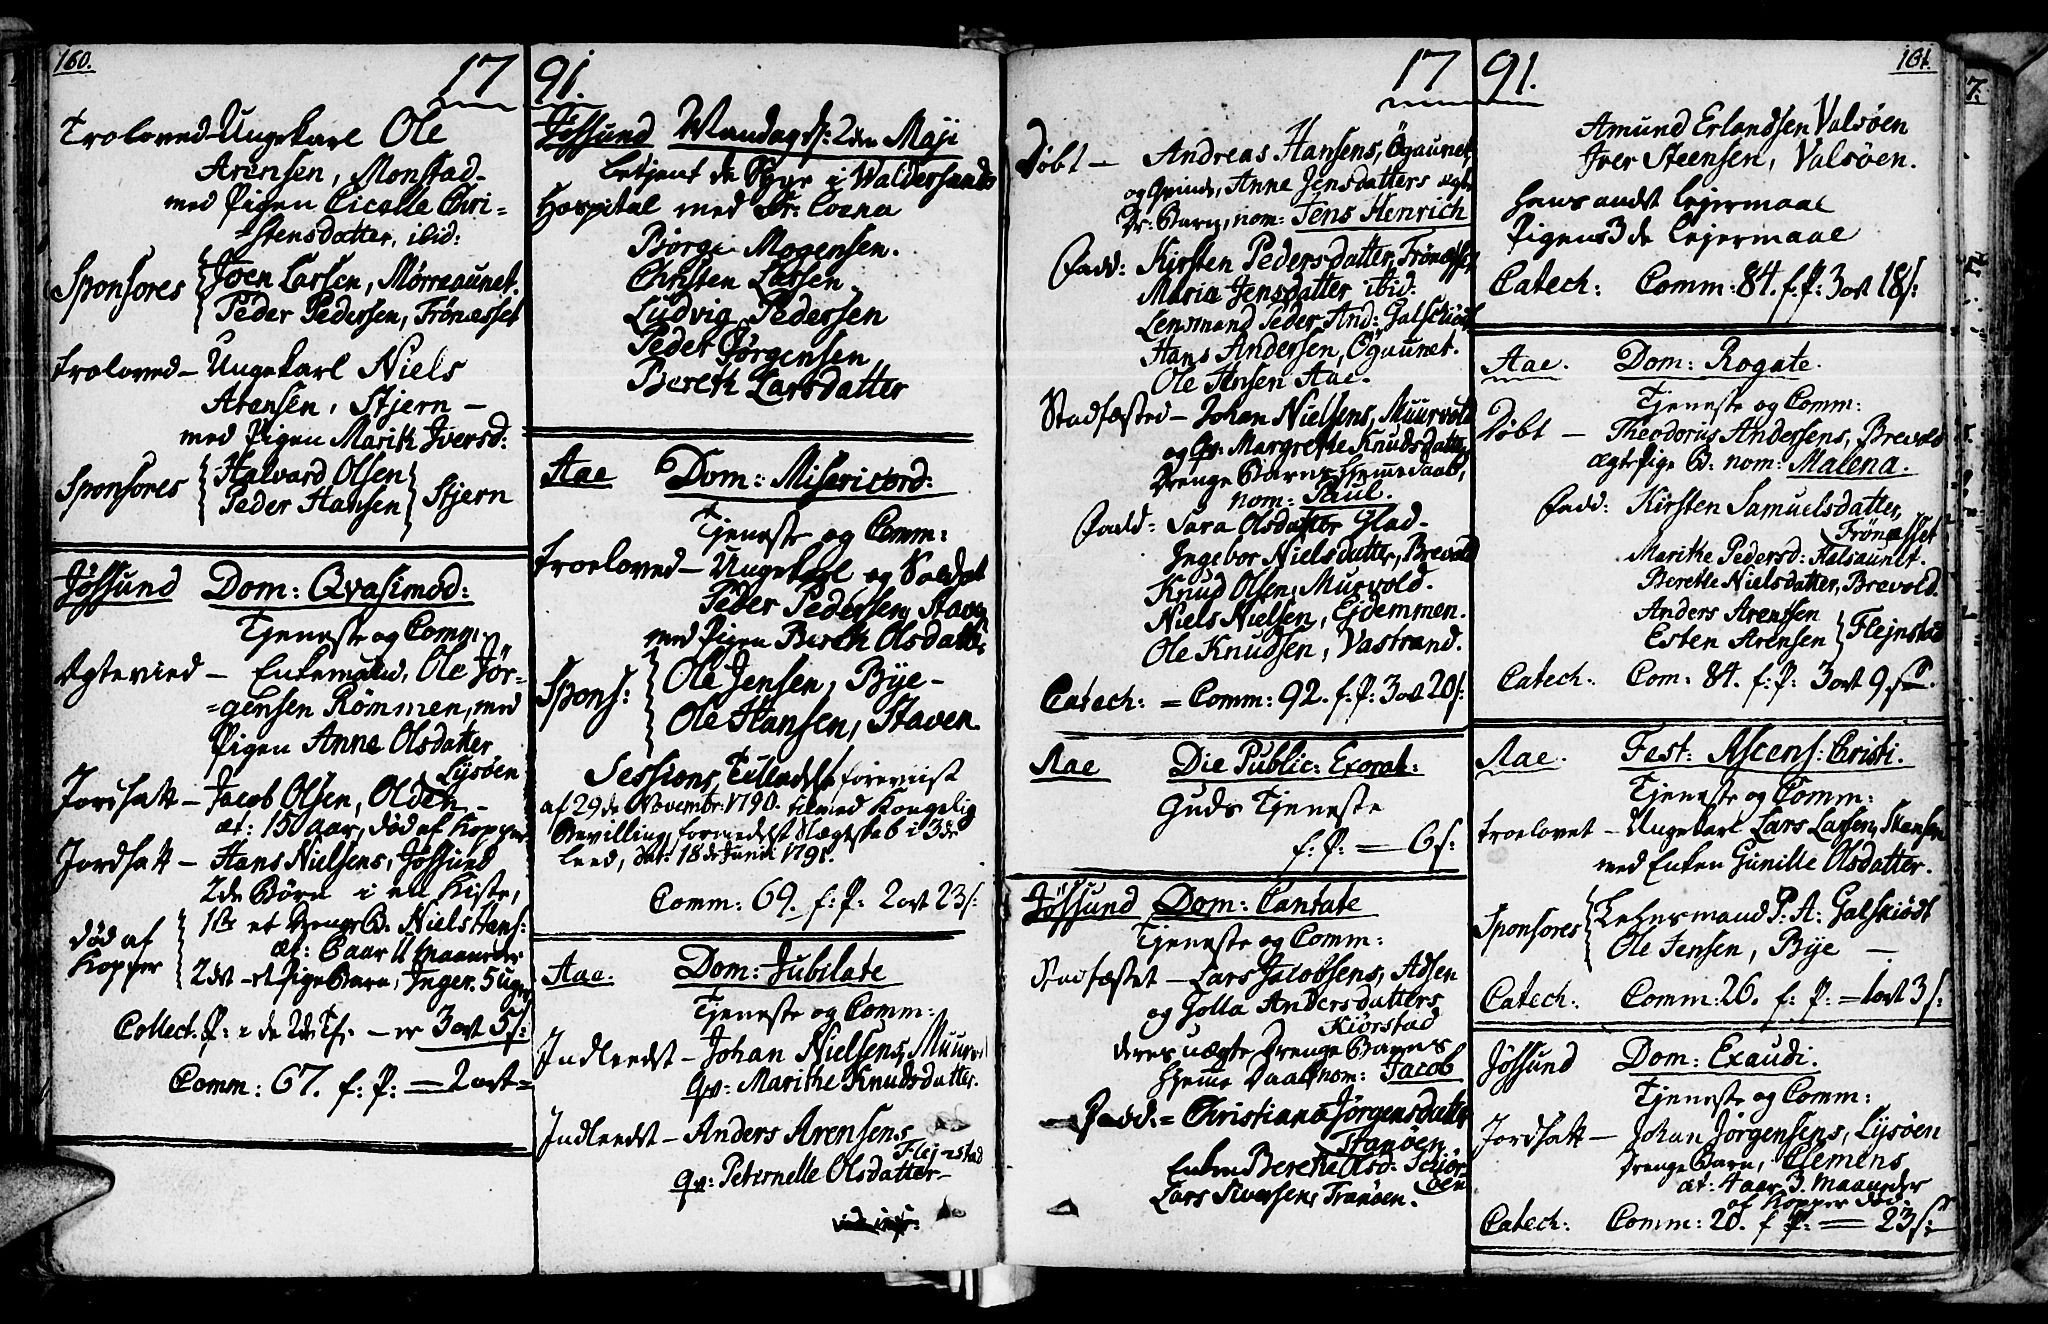 160.
1791.
Troloved – Ungekarl Ole
Arensen, Monstad –
med Pigen Cicelle Chri-
stensdatter, ibid:
Sponsores
Joen Larsen, Mørreaunet.
Peder Pedersen, Frönesset
troloved – Ungekarl Niels
Arensen, Stjern –
med Pigen Marith Iversd:
Sponsores
Halvard Olsen
Peder Hansen
Stjern
Jøssund Dom: Qvasimod:
Tjeneste og Comm:
Egtevied – Enkemand, Ole Jör-
=gensen Römmen, med
Pigen Anne Olsdatter
Lysöen
Jordsatt – Jacob Olsen, Olden –
æt: 15 aar, död af Kopper
Jordsatt – Hans Nielsens, Jøssund
2de Börn i en Kiste,
död af
Kopper
1ste et Drenge B: Niels Hans:
æt: 6 aar 11 maaneder
2det – et Pige Barn, Inger. 5 uger
Collect. P: – er 3 ort 5 s:
Comm: 67. f: P: = 2 ort =
Jøssund Mandag d: 2den Maji
betjent de Syge i Waldersunds
Hospital med Sr: Coena
Björgi Mogensen.
Christen Larsen.
Ludvig Pedersen
Peder Jörgensen
Bereth Larsdatter
Aae Dom: Misericord:
Tjeneste og Comm:
troeloved – Ungekarl og Soldat
Peder Pedersen, Staven
med Pigen Bereth Olsdatter
Spons:
Ole Jensen, Bye –
Ole Hansen, Staven
Sessions Tilladelse foreviist
af 29de Novembr: 1790. tilmed Kongelig
Bevilling formedelst Slægtskab i 3de
leed, dat: 18de Junii 1791.
Comm: 69. f: P: 2 ort 23 s:
Aae. Dom: Jubilate
Tjeneste og Comm:
Indleedt – Johan Nielsens, Muurvold
Qv: Marithe Knudsdatter.
Indleedt – Anders Arensens
Flejnstad
Qv: Peternelle Olsdatter –
1791.
161.
Döbt – Andreas Hansens, Ögaunet
og Qvinde, Anne Jensdatters ægte
Dr: Barn, nom: Jens Henrich
Fadd: Kirsten Pedersdatter, Frönesset
Maria Jensdatter ibid:
Lensmand Peder And: Galschiödt
Hans Andersen, Ögaunet.
Ole Hansen Aae.
Stadfæsted – Johan Nielsens, Muurvold
og Qv: Margrethe Knudsdatters
Drenge Barns Hjemmedaab,
nom: Paul.
Fadd: Sara Olsdatter Glad –
Ingebor Nielsdatter, Brevold
Knud Olsen, Murvold.
Niels Nielsen, Ejdemmen.
Ole Knudsen, Vastrand.
Catech: = Comm: 92. f: P: 3 ort 20 s:
Aae Die Public: Exorat:
Guds Tjeneste
f: P: = 6 s:
Jøssund Dom: Cantate
Tjeneste og Comm:
Stadfæstet – Lars Jacobsens, Adsen
og Golla Andersdatters
Kiörstad
deres uægte Drenge Barns
Hjemme Daab nom: Jacob
Fadd: = Christiana Jörgensdatter
Tranöen.
Enken Berethe Olsd: Schör-
öen
Lars Siversen, Tranöen.
Amund Erlandsen Valsöen
Iver Steensen, Valsöen.
hans andet Lejermaal
Pigens 3de Lejermaal
Catech: Comm: 84. f: P: 3 ort 18 s:
Aae. Dom: Rogate.
Tjeneste og Comm:
Döbt – Theodorus Andersens, Brevold
ægte Pige B: nom: Malena.
Fadd: Kirsten Samuelsdatter,
Frönesset
Marithe Pedersd: Kalsaunet.
Berethe Nielsdatter, Brevold.
Anders Arentsen
Esten Arensen
Flejnstad
Catech: Com: 84. f: P: 3 ort 9 s.
Aae. Fest: Ascens: Christi.
Tjeneste og Comm:
troelovet – Ungekarl Lars Larsen, Skansen
med Enken Gunille Olsdatter.
Sponsores
Lehnsmand P: A: Galskiödt
Ole Jensen, Bye –
Catech: Comm: 26. f: P: = 1 ort 3 s:
Jøssund Dom: Exaudi.
Tjeneste og Comm:
Jordsatt – Johan Jörgensens, Lysöen
Drenge Barn, Clemens
æt: 4 aar 3 maaneder
af Kopper död
Catech: Comm: 20. f: P: = 23 s: